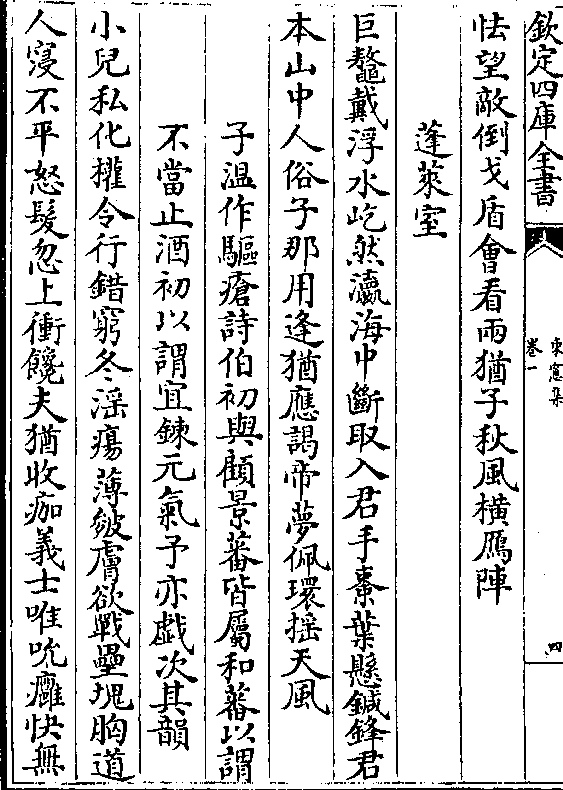 欽定四庫全書
東窻集
卷一
四
怯望敵倒戈盾會看兩猶子秋風橫鴈陣
蓬萊室
巨鼇戴浮水屹然瀛海中斷取入君手棗葉懸鍼鋒君
本山中人俗子那用逢猶應謁帝夢佩環揺天風
子温作驅瘡詩伯初與顧景蕃皆屬和蕃以謂
不當止酒初以謂宜鍊元氣予亦戯次其韻
小兒私化權令行錯窮冬滛瘍薄皴膚欲戰壘塊胸道
人寖不平怒髮忽上衝饞夫猶收痂義士唯吮癰快無